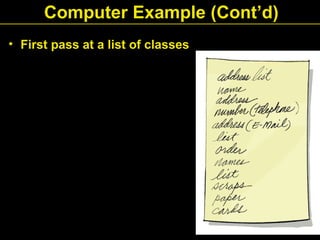 Computer Example (Cont’d)
• First pass at a list of classes
address list
name
address
number (telephone)
address (E-Mail)
list
order
names
list
scraps
paper
cards